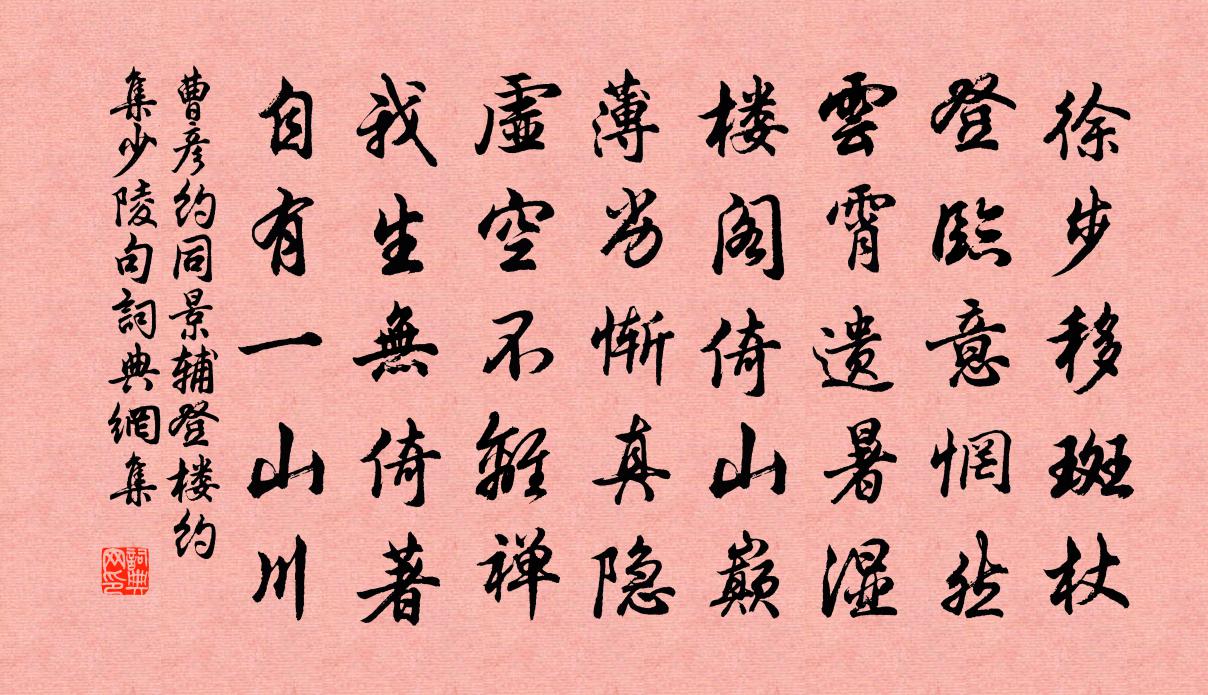 徐步移斑杖
登臨意惘然
雲霄遗暑湿
楼阁倚山巅
薄劣惭真隐
虚空不離禅
我生無倚著
自有一山川
曹彦约同景辅登楼约
集少陵句詞典網集
詞典网印